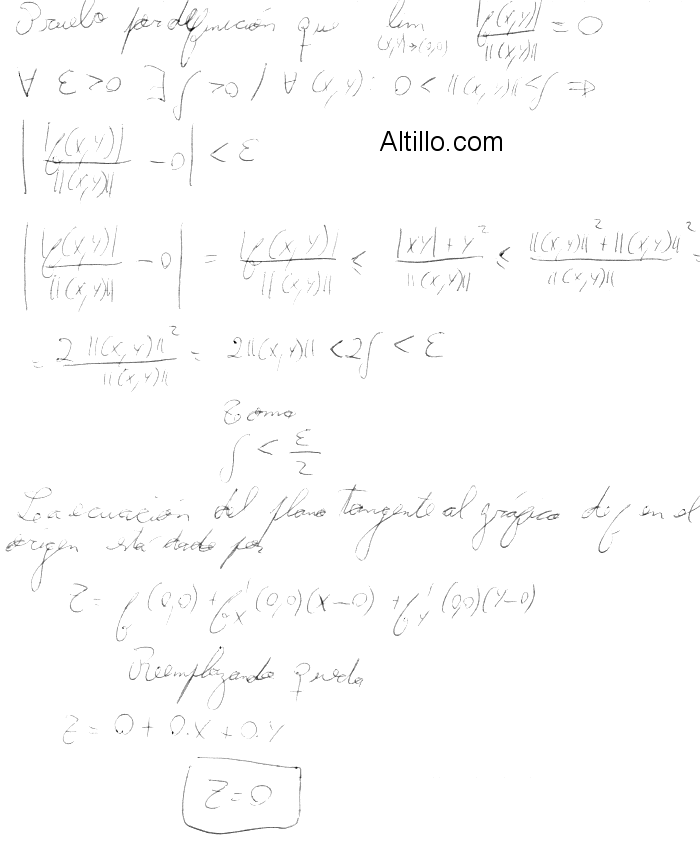 Pruebo por definición que lim (x,y)→(0,0) |f(x,y)| / ||(x,y)|| = 0
∀ ε>0 ∃ δ>0 / ∀ (x,y): 0 < ||(x,y)|| < δ ⇒
Altillo.com
| |f(x,y)| / ||(x,y)|| − 0 | < ε
| |f(x,y)| / ||(x,y)|| − 0 | = |f(x,y)| / ||(x,y)|| ≤ |xy| + y² / ||(x,y)|| ≤ ||(x,y)||² + ||(x,y)||² / ||(x,y)|| =
= 2 ||(x,y)||² / ||(x,y)|| = 2||(x,y)|| < 2δ < ε
Tomo
δ < ε/2
La ecuación del plano tangente al gráfico de f en el
origen está dado por
Z = f(0,0) + f'x(0,0)(x−0) + f'y(0,0)(y−0)
Reemplazando queda
Z = 0 + 0.x + 0.y
Z = 0